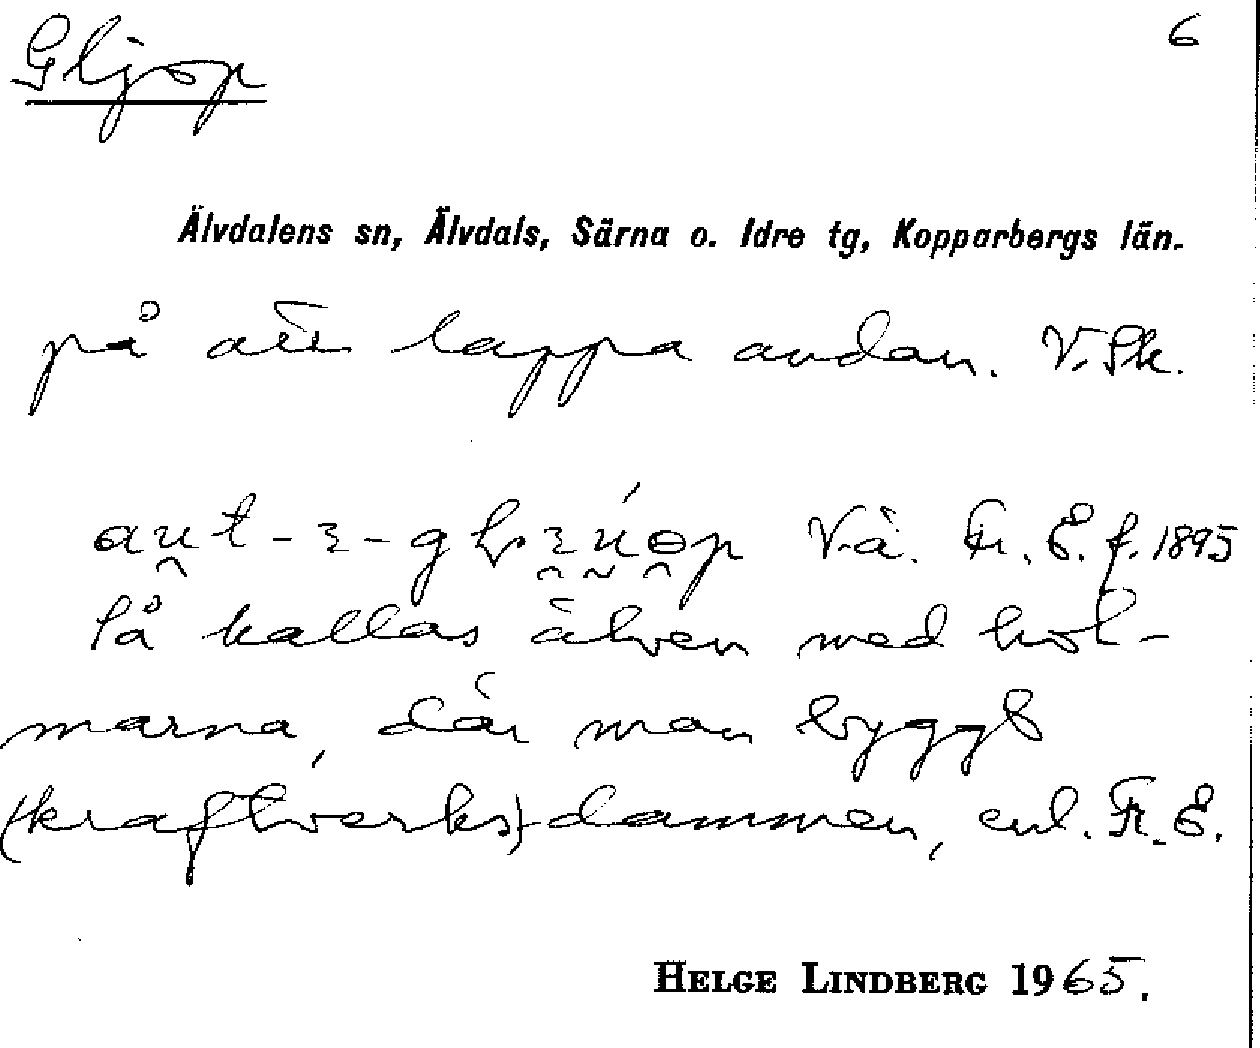 Gljop
6
Älvdalens sn, Älvdals, Särna o. Idre tg, Kopparbergs län.
på att tappa andan. V. Sk.
V.å. Fr. E. f. 1895
Så kallas älven med hol-
marna, där man byggt
(kraftverks)dammen, enl. Fr. E.
HELGE LINDBERG 1965.